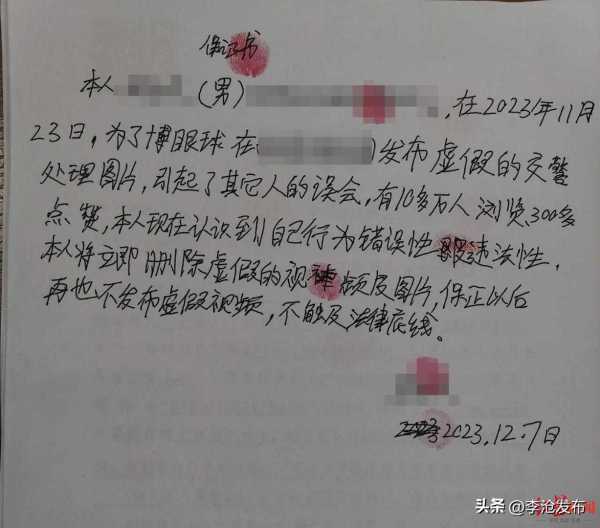 保证书
本人 (男) ,在2023年11月
23日,为了博眼球在 )发布虚假的交警
处理图片,引起了其它人的误会,有10多万人浏览,300多
点赞,本人现在认识到自己行为错误性 违法性,
本人将立即删除虚假的视 频及图片,保正以后
再也不发布虚假视频,不触及法律底线。
2023.12.7日
头条@李沧发布